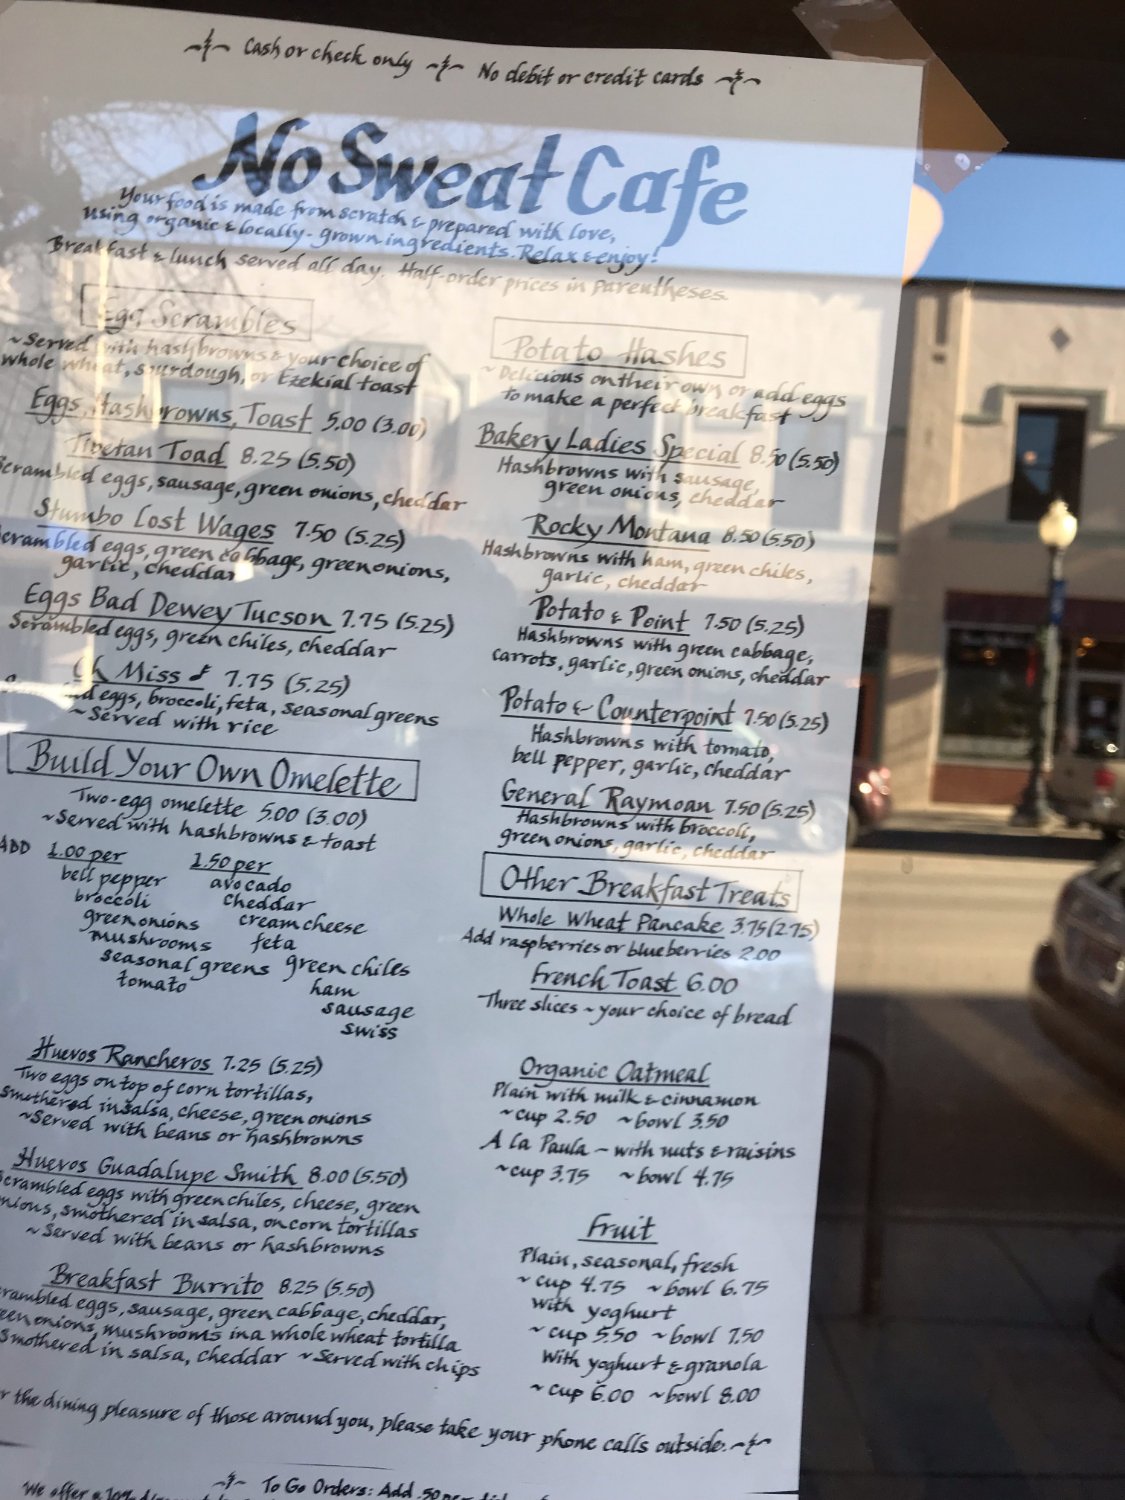 Cash or check only No debit or credit cards
No Sweat Cafe
Your food is made from scratch & prepared with love,
using organic & locally-grown ingredients. Relax & enjoy!
Breakfast & lunch served all day. Half-order prices in parentheses.
Egg Scrambles
~Served with hashbrowns & your choice of
whole wheat, sourdough, or Ezekial toast
Eggs, Hashbrowns, Toast 5.00 (3.00)
Tibetan Toad 8.25 (5.50)
Scrambled eggs, sausage, green onions, cheddar
Stumbo Lost Wages 7.50 (5.25)
Scrambled eggs, green cabbage, green onions,
garlic, cheddar
Eggs Bad Dewey Tucson 7.75 (5.25)
Scrambled eggs, green chiles, cheddar
Oh Miss ♪ 7.75 (5.25)
eggs, broccoli, feta, seasonal greens
~Served with rice
Build Your Own Omelette
Two-egg omelette 5.00 (3.00)
~Served with hashbrowns & toast
ADD 1.00 per
bell pepper
broccoli
green onions
mushrooms
seasonal greens
tomato
1.50 per
avocado
cheddar
cream cheese
feta
green chiles
ham
sausage
swiss
Huevos Rancheros 7.25 (5.25)
Two eggs on top of corn tortillas,
smothered in salsa, cheese, green onions
~Served with beans or hashbrowns
Huevos Guadalupe Smith 8.00 (5.50)
Scrambled eggs with green chiles, cheese, green
onions, smothered in salsa, on corn tortillas
~Served with beans or hashbrowns
Breakfast Burrito 8.25 (5.50)
Scrambled eggs, sausage, green cabbage, cheddar,
green onions, mushrooms in a whole wheat tortilla
Smothered in salsa, cheddar ~Served with chips
Potato Hashes
~Delicious on their own or add eggs
to make a perfect breakfast
Bakery Ladies Special 8.50 (5.50)
Hashbrowns with sausage,
green onions, cheddar
Rocky Montana 8.50 (5.50)
Hashbrowns with ham, green chiles,
garlic, cheddar
Potato & Point 7.50 (5.25)
Hashbrowns with green cabbage,
carrots, garlic, green onions, cheddar
Potato & Counterpoint 7.50 (5.25)
Hashbrowns with tomato,
bell pepper, garlic, cheddar
General Raymoan 7.50 (5.25)
Hashbrowns with broccoli,
green onions, garlic, cheddar
Other Breakfast Treats
Whole Wheat Pancake 3.75 (2.75)
Add raspberries or blueberries 2.00
French Toast 6.00
Three slices ~ your choice of bread
Organic Oatmeal
Plain with milk & cinnamon
~cup 2.50 ~bowl 3.50
A la Paula ~ with nuts & raisins
~cup 3.75 ~bowl 4.75
Fruit
Plain, seasonal, fresh
~cup 4.75 ~bowl 6.75
with yoghurt
~cup 5.50 ~bowl 7.50
with yoghurt & granola
~cup 6.00 ~bowl 8.00
the dining pleasure of those around you, please take your phone calls outside.
To Go Orders: Add .50 per
We offer a 10%